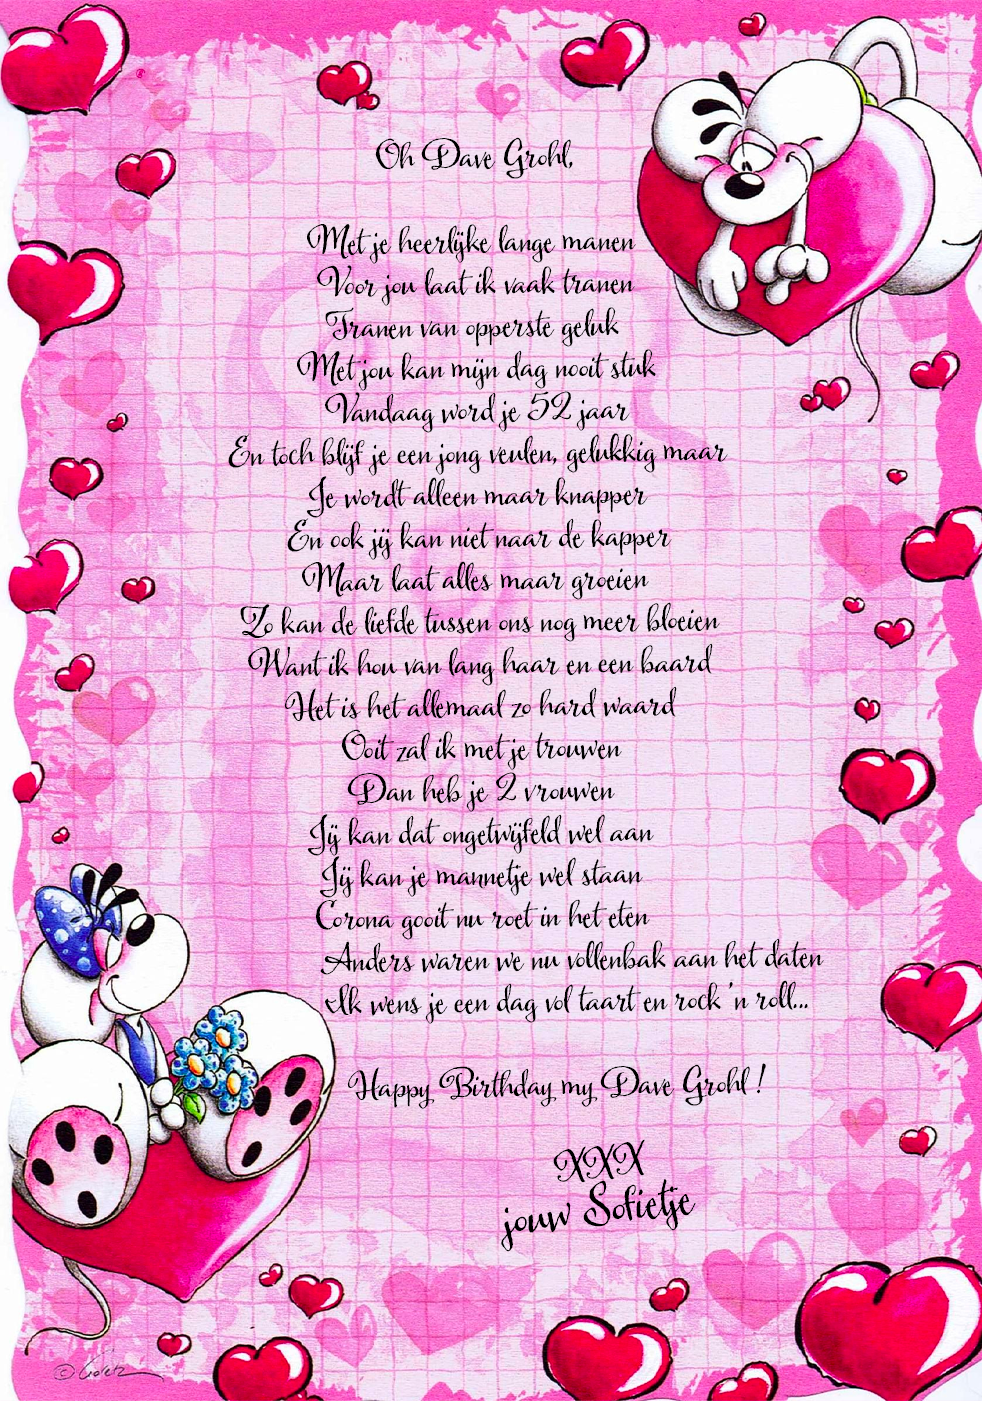 Oh Dave Grohl,
Met je heerlijke lange manen
Voor jou laat ik vaak tranen
Tranen van opperste geluk
Met jou kan mijn dag nooit stuk
Vandaag word je 52 jaar
En toch blijf je een jong veulen, gelukkig maar
Je wordt alleen maar knapper
En ook jij kan niet naar de kapper
Maar laat alles maar groeien
Zo kan de liefde tussen ons nog meer bloeien
Want ik hou van lang haar en een baard
Het is het allemaal zo hard waard
Ooit zal ik met je trouwen
Dan heb je 2 vrouwen
Jij kan dat ongetwijfeld wel aan
Jij kan je mannetje wel staan
Corona gooit nu roet in het eten
Anders waren we nu vollenbak aan het daten
Ik wens je een dag vol taart en rock 'n roll...
Happy Birthday my Dave Grohl !
XXX
jouw Sofietje
©